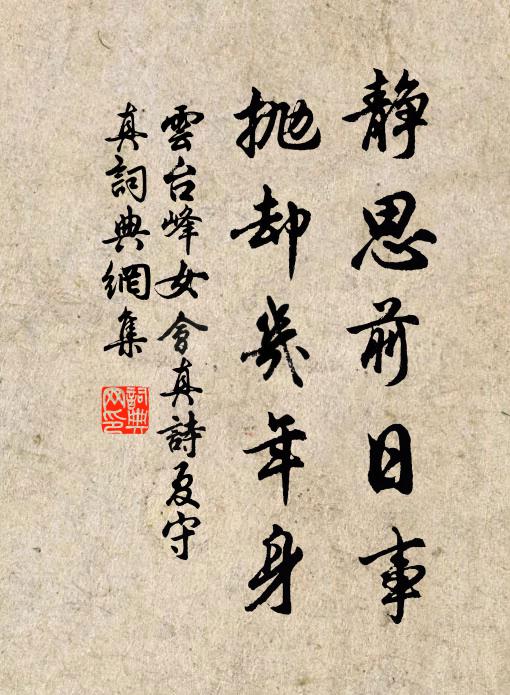 静思前日事
抛却几年身
雲台峰女会真詩夏守
真詞典網集
詞典网印